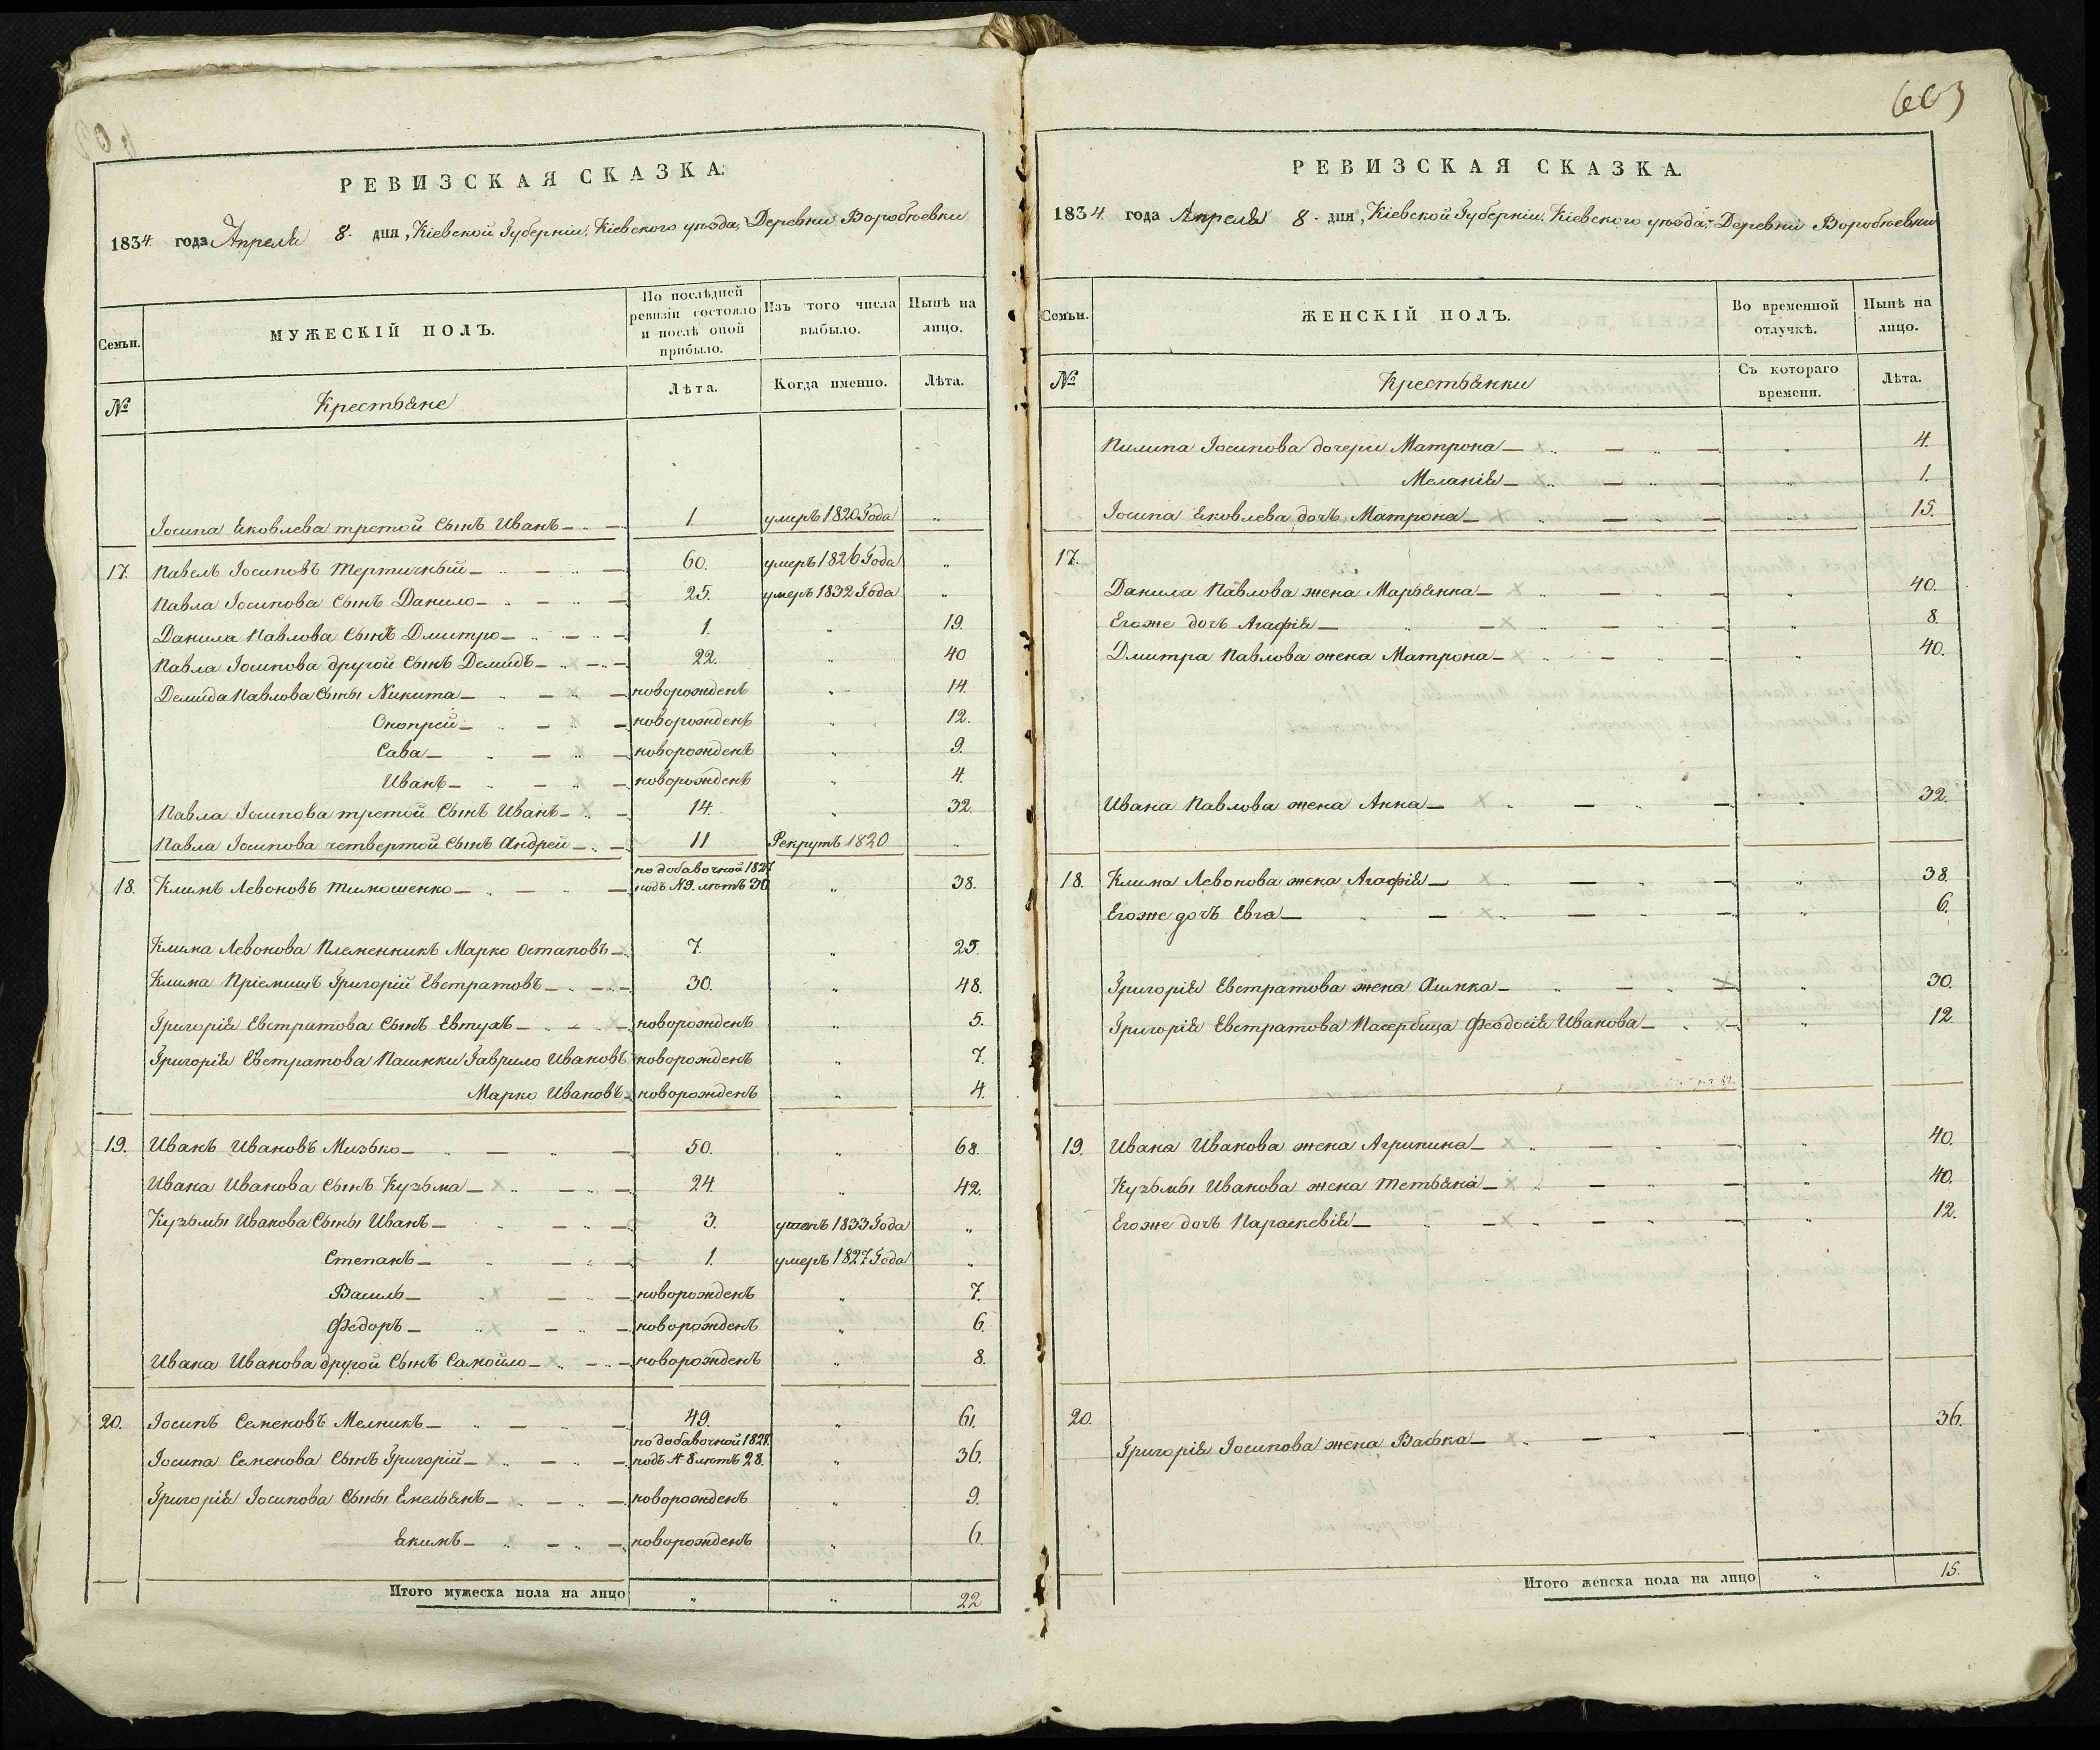 603
РЕВИЗСКАЯ СКАЗКА.
1834. года Апреля 8. дня, Кіевской Губерніи, Кіевского уѣзда, Деревни Воробѣевки
Семьи.
МУЖЕСКІЙ ПОЛЪ.
По послѣдней
ревизіи состояло
и послѣ оной
прибыло.
Изъ того числа
выбыло.
Нынѣ на
лицо.
№
Крестьяне
Лѣта.
Когда именно.
Лѣта.
Іосипа Яковлева третой Сынъ Иванъ 1 умеръ 1820 Года "
17. Павелъ Іосиповъ Тертичный 60. умеръ 1826 Года "
Павла Іосипова Сынъ Данило 25. умеръ 1832 Года "
Данила Павлова Сынъ Дмитро 1. " 19.
Павла Іосипова другой Сынъ Демидъ 22. " 40
Демида Павлова Сыны Никита новорожденъ " 14.
Онопрей новорожденъ " 12.
Сава новорожденъ " 9.
Иванъ новорожденъ " 4.
Павла Іосипова третой Сынъ Иванъ 14. " 32.
Павла Іосипова четвертой Сынъ Андрей 11 Рекрутъ 1820 "
по добавочной 1827
18. Климъ Левоновъ Тимошенко подъ №9. лѣтъ 30 " 38.
Клима Левонова Племенникъ Марко Остаповъ 7. " 25.
Клима Пріемишъ Григорій Евстратовъ 30. " 48.
Григорія Евстратова Сынъ Евтухъ новорожденъ " 5.
Григорія Евстратова Пашнки Гаврило Ивановъ новорожденъ " 7.
Марко Ивановъ новорожденъ " 4.
19. Иванъ Ивановъ Мизько 50. " 68.
Ивана Иванова Сынъ Кузьма 24. " 42.
Кузьмы Иванова Сыны Иванъ 3. 1833 Года "
Степанъ 1. умеръ 1827 Года "
Василь новорожденъ " 7.
Федоръ новорожденъ " 6.
Ивана Иванова другой Сынъ Самойло новорожденъ " 8.
20. Іосипъ Семеновъ Мелникъ 49. " 61.
по добавочной 1827.
Іосипа Семенова Сынъ Григорій подъ № 8 лѣтъ 28. " 36.
Григорія Іосипова Сыны Емельянъ новорожденъ " 9.
Якимъ новорожденъ " 6.
Итого мужеска пола на лицо " " 22
РЕВИЗСКАЯ СКАЗКА.
1834. года Апреля 8. дня, Кіевской Губерніи, Кіевского уѣзда, Деревни Воробѣевки
Семьи.
ЖЕНСКІЙ ПОЛЪ.
Во временной
отлучкѣ.
Нынѣ на
лицо.
№
Крестьянки
Съ котораго
времени.
Лѣта.
Пилипа Іосипова дочери Матрона " 4.
Меланія " 1.
Іосипа Яковлева дочъ Матрона " 15.
17.
Данила Павлова жена Марьянна " 40.
Егоже дочъ Агафія " 8
Дмитра Павлова жена Матрона " 40.
Ивана Павлова жена Анна " 32.
18. Клима Левонова жена Агафія " 38
Егоже дочъ Евга " 6.
Григорія Евстратова жена Акимка " 30.
Григорія Евстратова Пасербица Феодосія Иванова " 12
19. Ивана Иванова жена Агрипина " 40.
Кузьмы Иванова жена Тетьяна " 40.
Егоже дочъ Параскевія " 12.
20.
Григорія Іосипова жена Васька " 36.
Итого женска пола на лицо " 15.